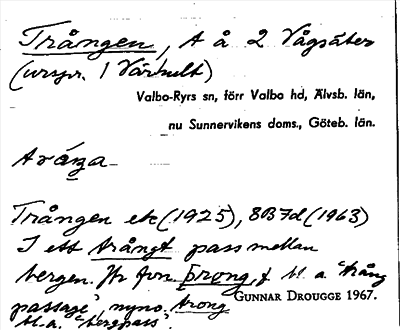 Trången, A å 2 Vågsäter
(urspr. 1 Värhult)
Valbo-Ryrs sn, förr Valbo hd, Älvsb. län,
nu Sunnervikens doms., Göteb. län.
Trången ek (1925), 8B7d (1963)
I ett trångt pass mellan
bergen. Jfr fvn. þrong, f. bl. a. "trång
passage", nyno. trong
bl.a. "bergpass".
GUNNAR DROUGGE 1967.